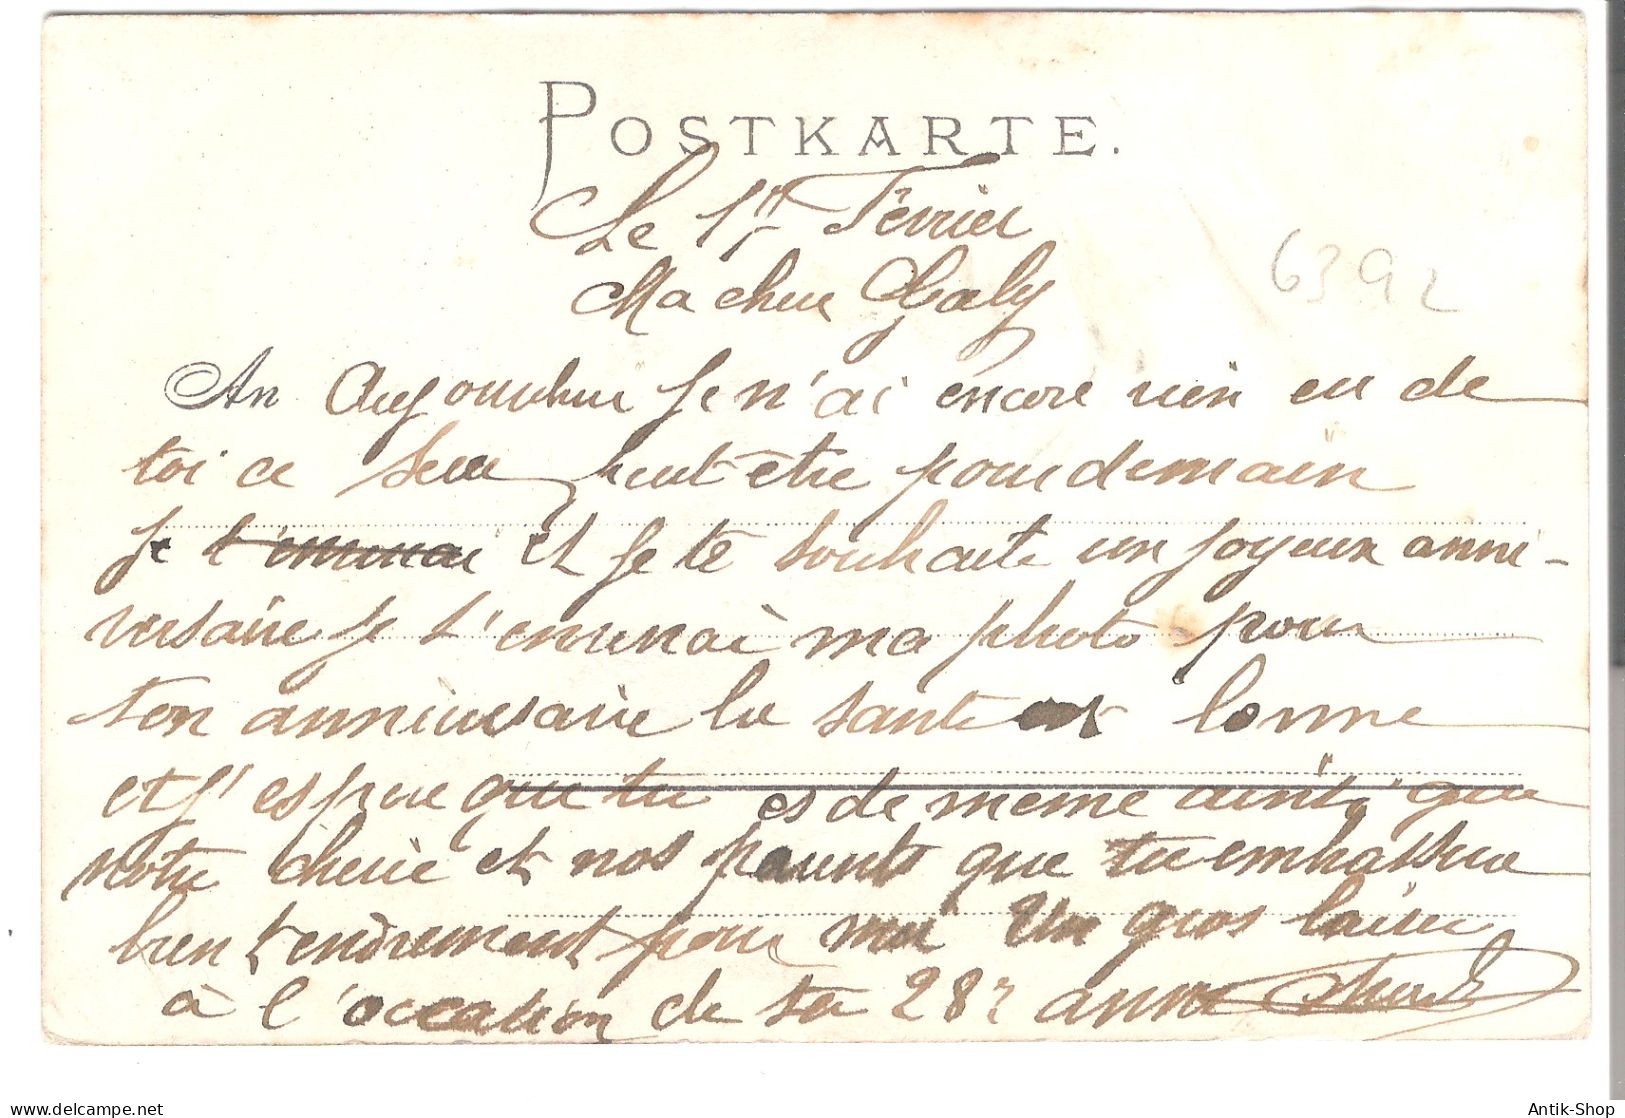 POSTKARTE.
Le 1er Février
Ma chere Gaby
6392
An Aujourdhui je n'ai encore rien eu de
toi ce sera peut-être pour demain
je et je te souhaite un joyeux anni-
versaire je t'envenai ma photo pour
ton anniversaire la sante est bonne
et j'espere que tu es de meme ainsi que
notre cherie et nos parents que tu embrassera
bien tendrement pour moi Un gros baiser
à l'occasion de ta 28e anné
Antik-Shop